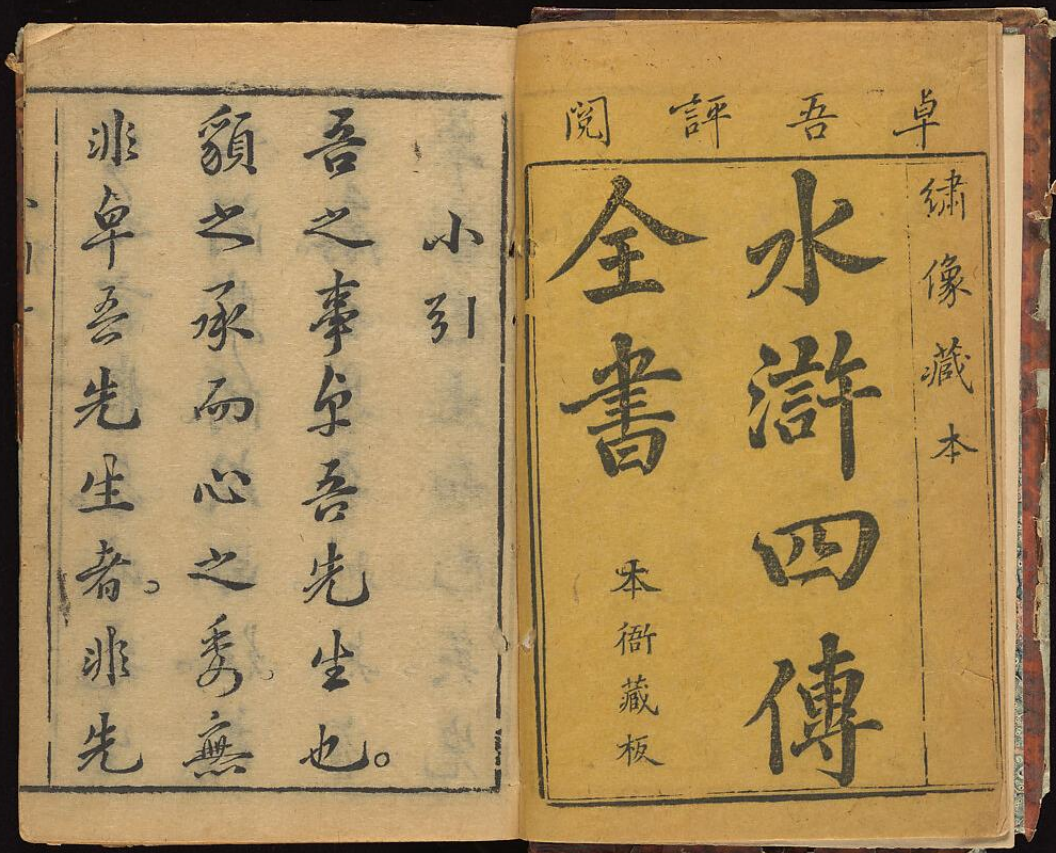 卓吾評閱
繡像藏本
水滸四傳
全書
本衙藏板
小引
吾之事卓吾先生也。
䫉之承而心之委。無
非卓吾先生者。非先